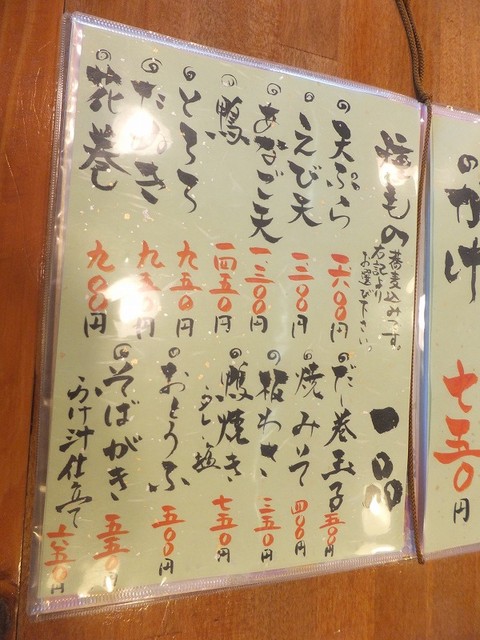 かけ 七五〇円
種もの
蕎麦込みです。
右記より
お選び下さい。
天ぷら 一六〇〇円
えび天 一三〇〇円
あなご天 一三〇〇円
鴨 一四五〇円
とろろ 九五〇円
たぬき 九五〇円
花巻 九〇〇円
一品
だし巻玉子 五〇〇円
焼みそ 四〇〇円
板わさ 三五〇円
鴨焼き 七五〇円
タレ・塩
おとうふ 五〇〇円
そばがき 五五〇円
つけ汁仕立て 六五〇円